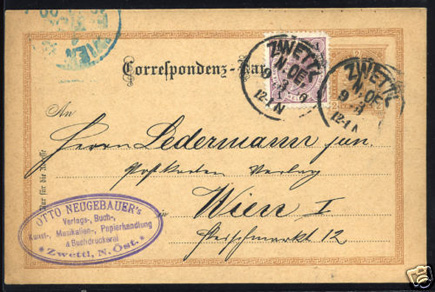 Correspondenz-Karte
ZWETTL
N. OE.
9 3
12-1 N
ZWETTL
N. OE.
9 3
12-1 N
An
Herrn Ledermann jun.
Postkarten Verlag
Wien I
Fleischmarkt 12
OTTO NEUGEBAUER's
Verlags-, Buch-,
Kunst-, Musikalien-, Papierhandlung
& Buchdruckerei
* Zwettl, N. Öst. *